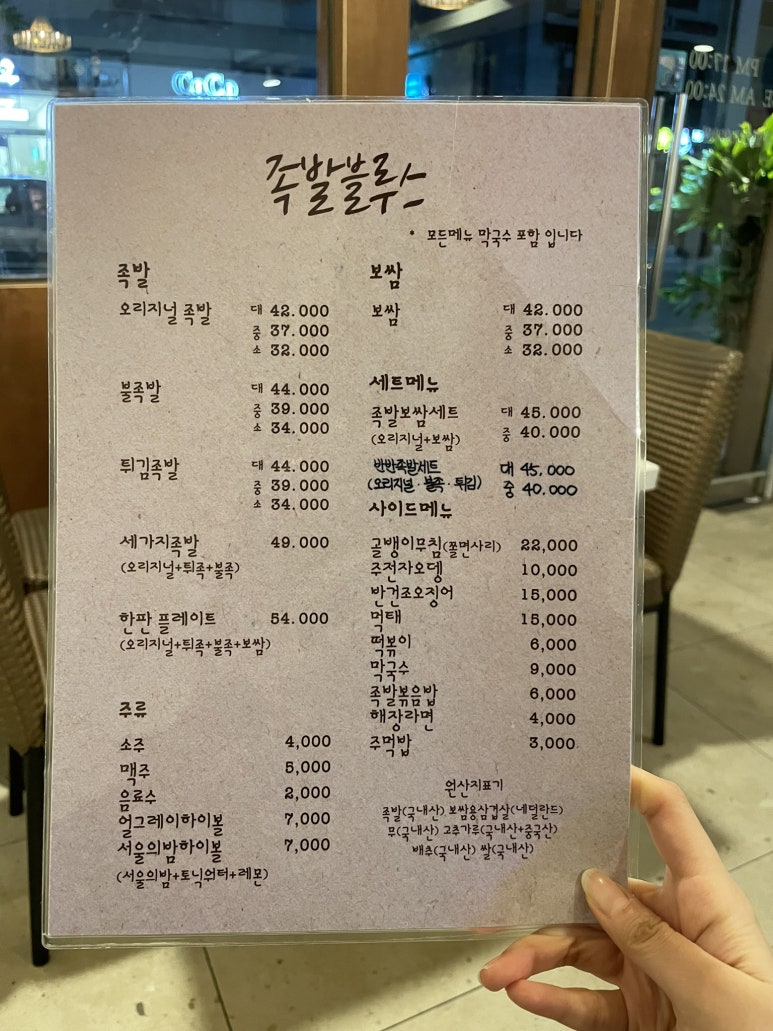 CoCo
PM 17:00
AM 24:00
족발블루스
* 모든메뉴 막국수 포함 입니다
족발
오리지널 족발 대 42.000
중 37.000
소 32.000
불족발 대 44.000
중 39.000
소 34.000
튀김족발 대 44.000
중 39.000
소 34.000
세가지족발 49.000
(오리지널+튀족+불족)
한판 플레이트 54.000
(오리지널+튀족+불족+보쌈)
주류
소주 4,000
맥주 5,000
음료수 2,000
얼그레이하이볼 7,000
서울의밤하이볼 7,000
(서울의밤+토닉워터+레몬)
보쌈
보쌈 대 42.000
중 37.000
소 32.000
세트메뉴
족발보쌈세트 대 45.000
(오리지널+보쌈) 중 40.000
반반족발세트 대 45,000
(오리지널·불족·튀김) 중 40.000
사이드메뉴
골뱅이무침(쫄면사리) 22,000
주전자오뎅 10,000
반건조오징어 15,000
먹태 15,000
떡볶이 6,000
막국수 9,000
족발볶음밥 6,000
해장라면 4,000
주먹밥 3,000
원산지표기
족발(국내산) 보쌈용삼겹살(네덜란드)
무(국내산) 고추가루(국내산+중국산)
배추(국내산) 쌀(국내산)